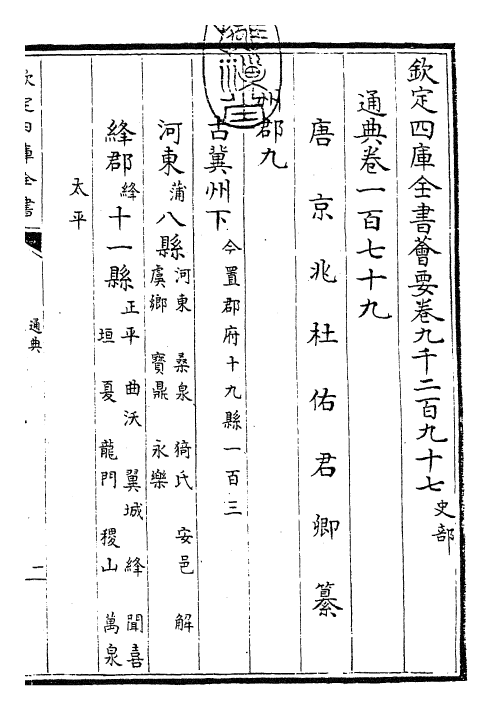 欽定四庫全書薈要卷九千二百九十七 史部
通典卷一百七十九
唐京兆杜佑君卿纂
州郡九
古冀州下 今置郡府十九縣一百三
河東蒲八縣 河東 桑泉 猗氏 安邑 解
虞鄉 寶鼎 永樂
絳郡絳十一縣 正平 曲沃 翼城 絳 聞喜
垣 夏 龍門 稷山 萬泉
太平
欽定四庫全書
通典
二